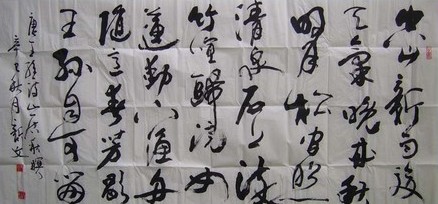 空山新雨後
天氣晚來秋
明月松間照
清泉石上流
竹喧歸浣女
蓮動下漁舟
隨意春芳歇
王孫自可留
唐王維詩山居秋暝
秋月